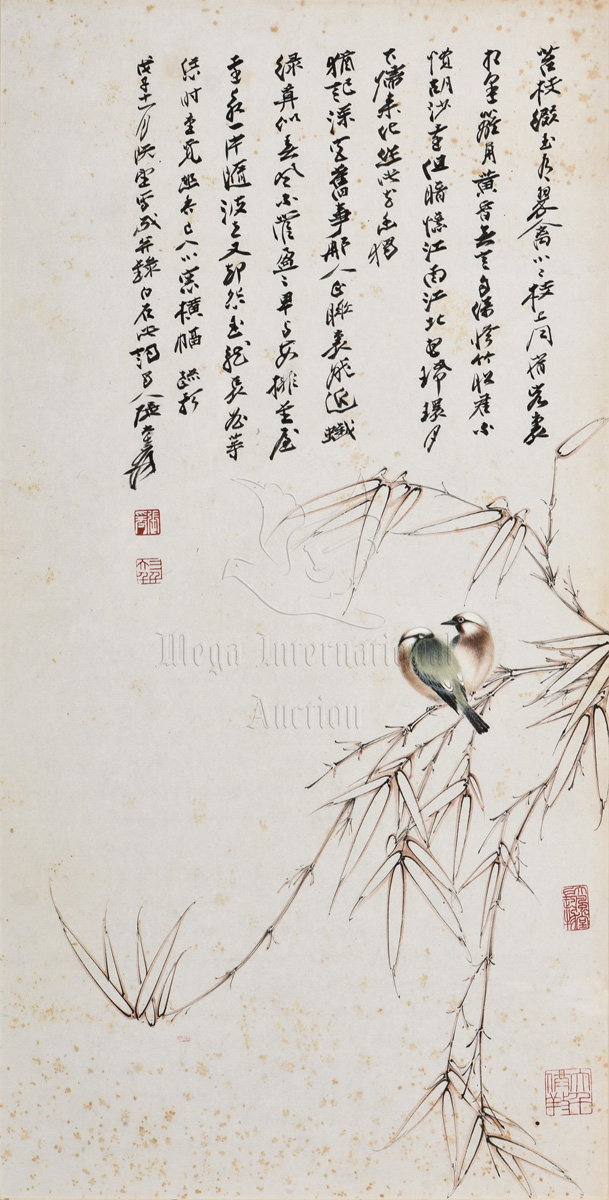 苔枝綴玉有翠禽小小枝上同宿客裏
相逢籬角黃昏無言自倚修竹昭君不
慣胡沙遠但暗憶江南江北想珮環月
下歸來化作此花幽獨
猶記深宮舊事那人正睡裏飛近蛾
綠莫似春風不管盈盈早與安排金屋
還教一片隨波去又卻怨玉龍哀曲等
恁時重覓幽香已入小窗橫幅 疏影
戊子十一月寫成并錄白石此詞蜀人張大爰
張爰
Mega International
Auction